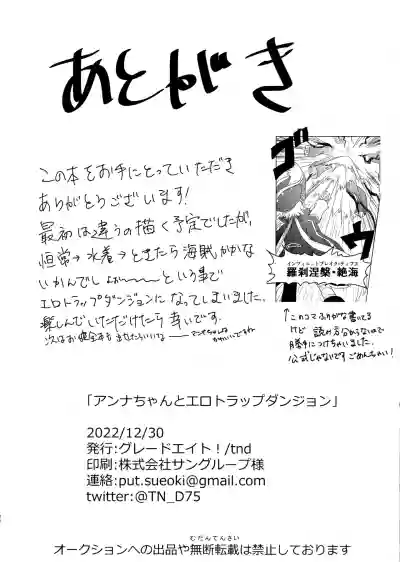 あとがき
この本をお手にとっていただき
ありがとうございます!
最初は違うの描く予定でしたが、
恒常→水着ときたら海賊、かかな
いかんでしょぉーーという事で
エロトラップダンジョンになってしまいました。
楽しんでいただけたら幸いです。
ゴオ
ウッ
インフィニットブレイク・ディアス
羅刹涅槃・絶海
↑このコマふりがな書いてる
けど 読め方分からないので
勝手につけちゃいました。
公式じゃないです ごめんちゃい!
「アンナちゃんとエロトラップダンジョン」
2022/12/30
発行:グレードエイト!/tnd
印刷:株式会社サングループ様
連絡:put.sueoki@gmail.com
twitter:@TN_D75
むだんてんさい
オークションへの出品や無断転載は禁止しております